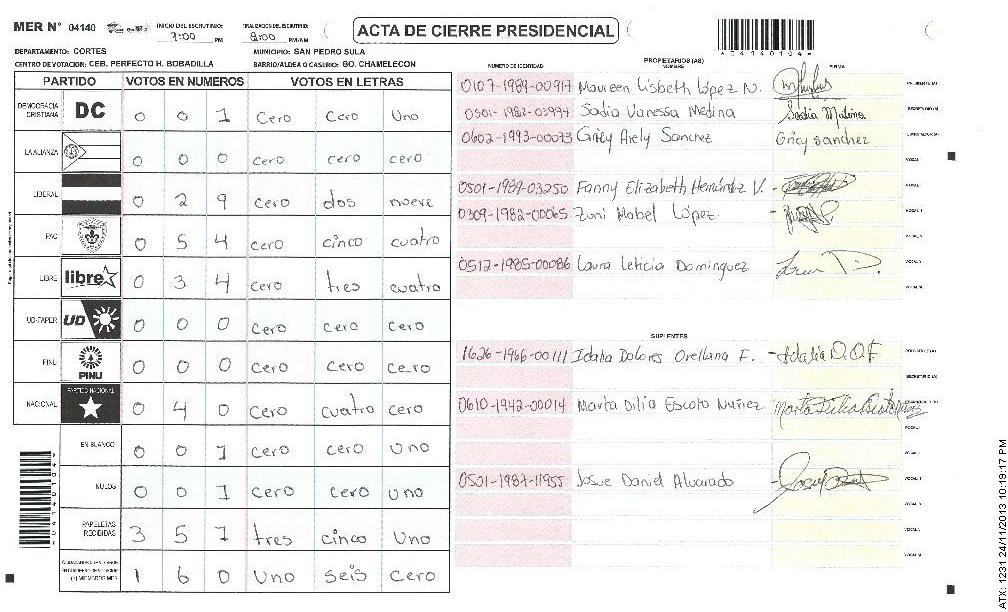 MER N° 04140
INICIO DEL ESCRUTINIO: 7:00 PM
FINALIZACION DEL ESCRUTINIO: 8:00 PM/AM
ACTA DE CIERRE PRESIDENCIAL
04140104
DEPARTAMENTO: CORTES
MUNICIPIO: SAN PEDRO SULA
CENTRO DE VOTACION: CEB. PERFECTO H. BOBADILLA
BARRIO/ALDEA O CASERIO: BO. CHAMELECON
PARTIDO VOTOS EN NUMEROS VOTOS EN LETRAS
DEMOCRACIA CRISTIANA DC 0 0 1 Cero Cero Uno
LA ALIANZA 0 0 0 cero cero cero
LIBERAL 0 2 9 cero dos nueve
PAC 0 5 4 cero cinco cuatro
LIBRE libre 0 3 4 cero tres cuatro
UD-FAPER UD 0 0 0 Cero Cero Cero
PINU PINU 0 0 0 cero cero cero
NACIONAL PARTIDO NACIONAL 0 4 0 cero cuatro cero
EN BLANCO 0 0 1 cero cero uno
NULOS 0 0 1 cero cero uno
PAPELETAS RECIBIDAS 3 5 1 tres cinco Uno
1 6 0 Uno seis Cero
NUMERO DE IDENTIDAD PROPIETARIOS (AS) FIRMA
0107-1989-00917 Maureen Lisbeth López N. PRESIDENTE (A)
0501-1982-03997 Sadia Vanessa Medina Sadia Medina SECRETARIO (A)
0602-1993-00073 Gricy Arely Sanchez Gricy sanchez ESCRUTADOR (A)
VOCAL I
0501-1989-03250 Fanny Elizabeth Hernández V.
0309-1982-00065 Zuni Mabel López
0512-1985-00086 Laura Leticia Dominguez
SUPLENTES
1626-1966-00111 Idalia Dolores Orellana F. Idalia D.O.F PRESIDENTE (A)
SECRETARIO (A)
0610-1942-00014 Marta Dilia Escoto Nuñez
0501-1987-11955 Josue Daniel Alvarado
ATX: 1231 24/11/2013 10:19:17 PM